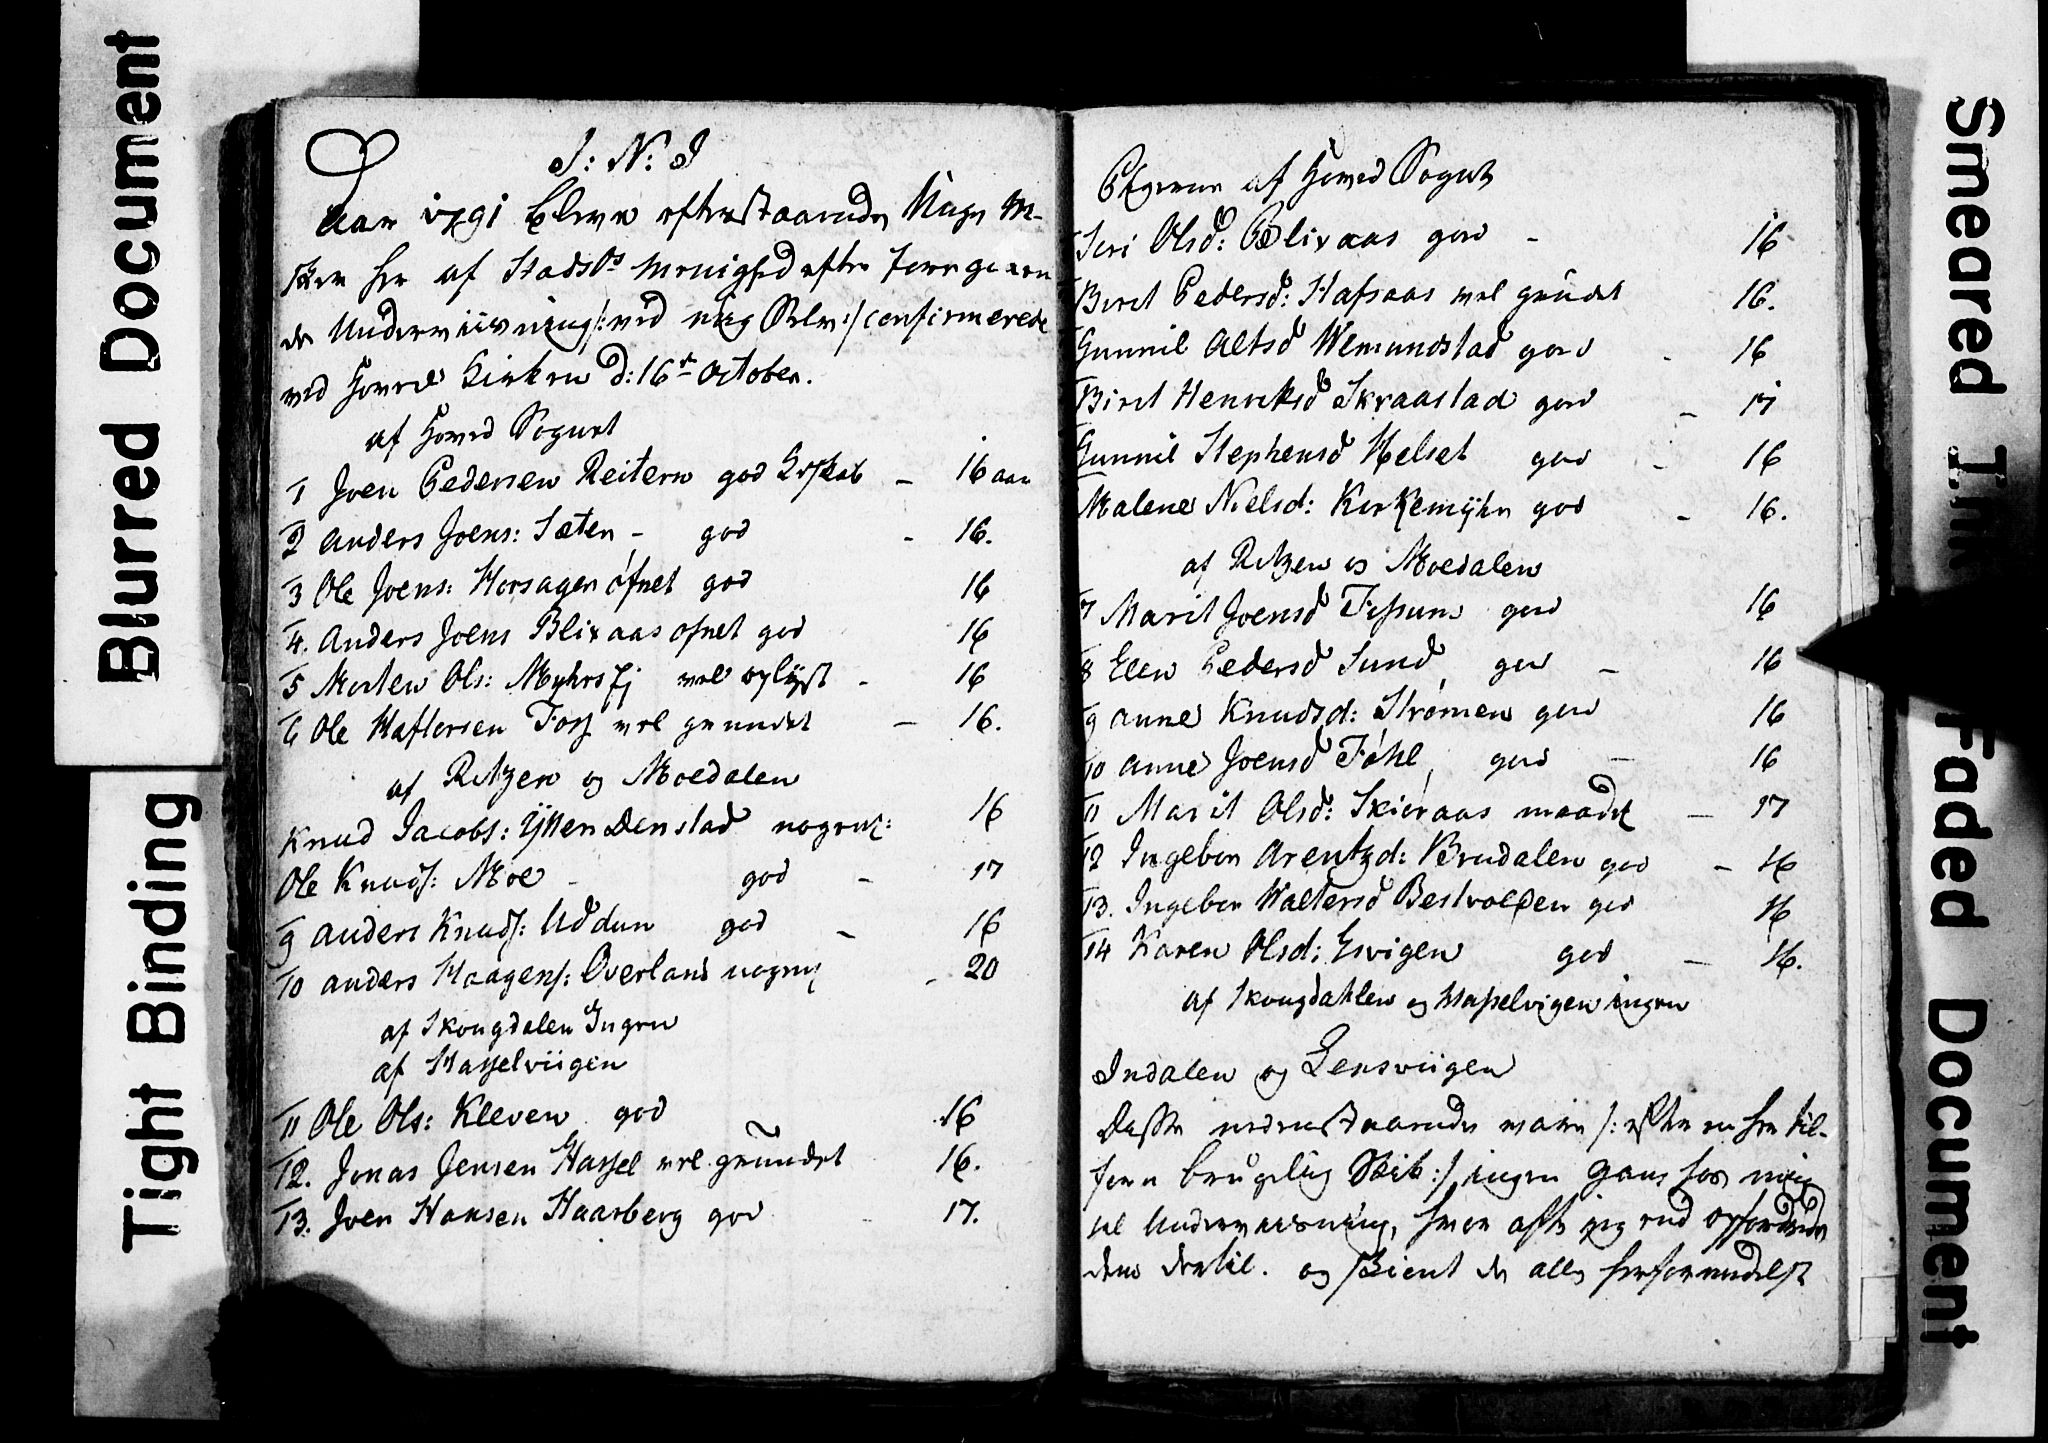 Blurred Document
Tight Binding
J: N: J
Aar 1791 bleve efterstaaende Unge M-
sker her af Stadsb: Menighed efter foregaaen
de Underviisning /: ved mig Selv :/ confirmerede
ved Hoved Kirken d: 16de October.
af Hoved Sognet
1 Joen Pedersen Reitern god Kskab – 16 aar
2 Anders Joens: Sæter – god – 16.
3 Ole Joens: Horsagen ofnet god 16
4. Anders Joens Blixaas ofnet god 16
5 Morten Ols: Myhrs vel oplyst – 16
6 Ole Haftorsen Foss vel grundet – 16.
af Ritzen og Moedalen
Knud Jacobs: Ytter Denstad nogenl: 16
Ole Knuds: Moe – god – 17
9 Anders Knuds: Udduu god – 16
10 Anders Haagens: Overland nogenl – 20
af Skougdalen Ingen
af Hasselviigen
11 Ole Ols: Kleven god 16
12. Jonas Jensen Hassel vel grundet 16.
13. Joen Hansen Haarberg god – 17.
Pigerne af Hoved Sognet
Siri Olsd: Blixaas god – 16
Beret Pedersd: Hafsaas vel grundet 16.
Gunnil Altsd Wemundstad god – 16
Biret Henriksd Skraastad god – 17
Gunnil Stephensd Helset god – 16
Malene Nielsd: Kirkemyhr god – 16.
af Ritzen og Moedalen
7 Marit Joensd Fissum god 16
8 Elen Pedersd Sund god – 16
9 Anne Knudsd: Strømen god 16
10 Anne Joensd Føhl, god – 16
11 Marit Olsd: Skieraas maadel – 17
12 Ingebor Arentzd: Brudalen god – 16
13. Ingebor Waltersd Bestvolden god 16
14 Karen Olsd: Esvigen god – 16.
af Skougdahlen og Hasselvigen ingen
Indalen og Lensviigen
Disse nedenstaaende vare /: efter en her til-
forn brugelig Skik :/ ingen Gang hos mig
til Underviisning, hvor ofte jeg end opfordrede
dem dertil. og skiønt de alle
Smeared Ink
Faded Document